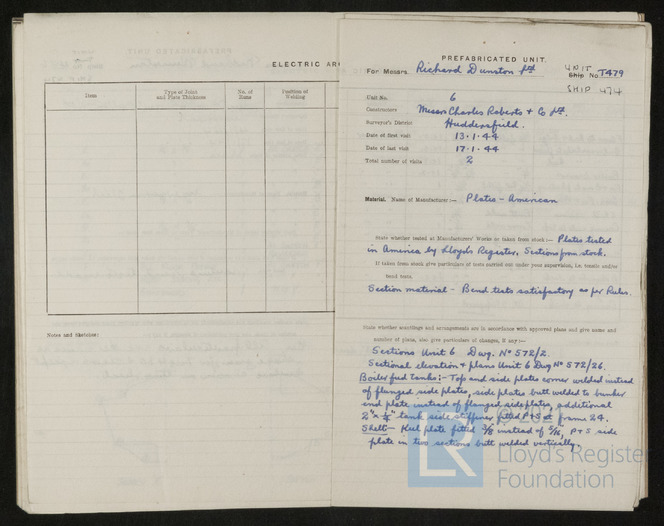 ELECTRIC AR
Item
Type of Joint
and Plate Thickness
No. of
Runs
Position of
Welding
Notes and Sketches:
PREFABRICATED UNIT.
For Messrs. Richard Dunston Ltd
UNIT
Ship No. T479
SHIP 474
Unit No. 6
Constructors Messrs Charles Roberts & Co Ltd.
Surveyor's District Huddersfield.
Date of first visit 13.1.44
Date of last visit 17.1.44
Total number of visits 2
Material. Name of Manufacturer:— Plates - American
State whether tested at Manufacturers' Works or taken from stock:— Plates tested
in America by Lloyds Register, Sections from stock.
If taken from stock give particulars of tests carried out under your supervision, i.e. tensile and/or
bend tests.
Section material - Bend tests satisfactory as per Rules.
State whether scantlings and arrangements are in accordance with approved plans and give name and
number of plans, also give particulars of changes, if any:—
Sections Unit 6 Dwg. No 572/2.
Sectional elevation & plans Unit 6 Dwg No 572/26.
Boiler fuel tanks:- Top and side plates corner welded instead
of flanged side plates, side plates butt welded to bunker
end plate instead of flanged side plates, additional
2" x 1/4" tank side stiffener fitted P & S at frame 24.
Shell:- Keel plate fitted 3/8 instead of 5/16, P & S side
plate in two sections butt welded vertically.
LR
Lloyd's Register
Foundation